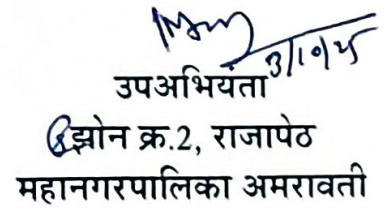 3/10/25
उपअभियंता
झोन क्र.2, राजापेठ
महानगरपालिका अमरावती